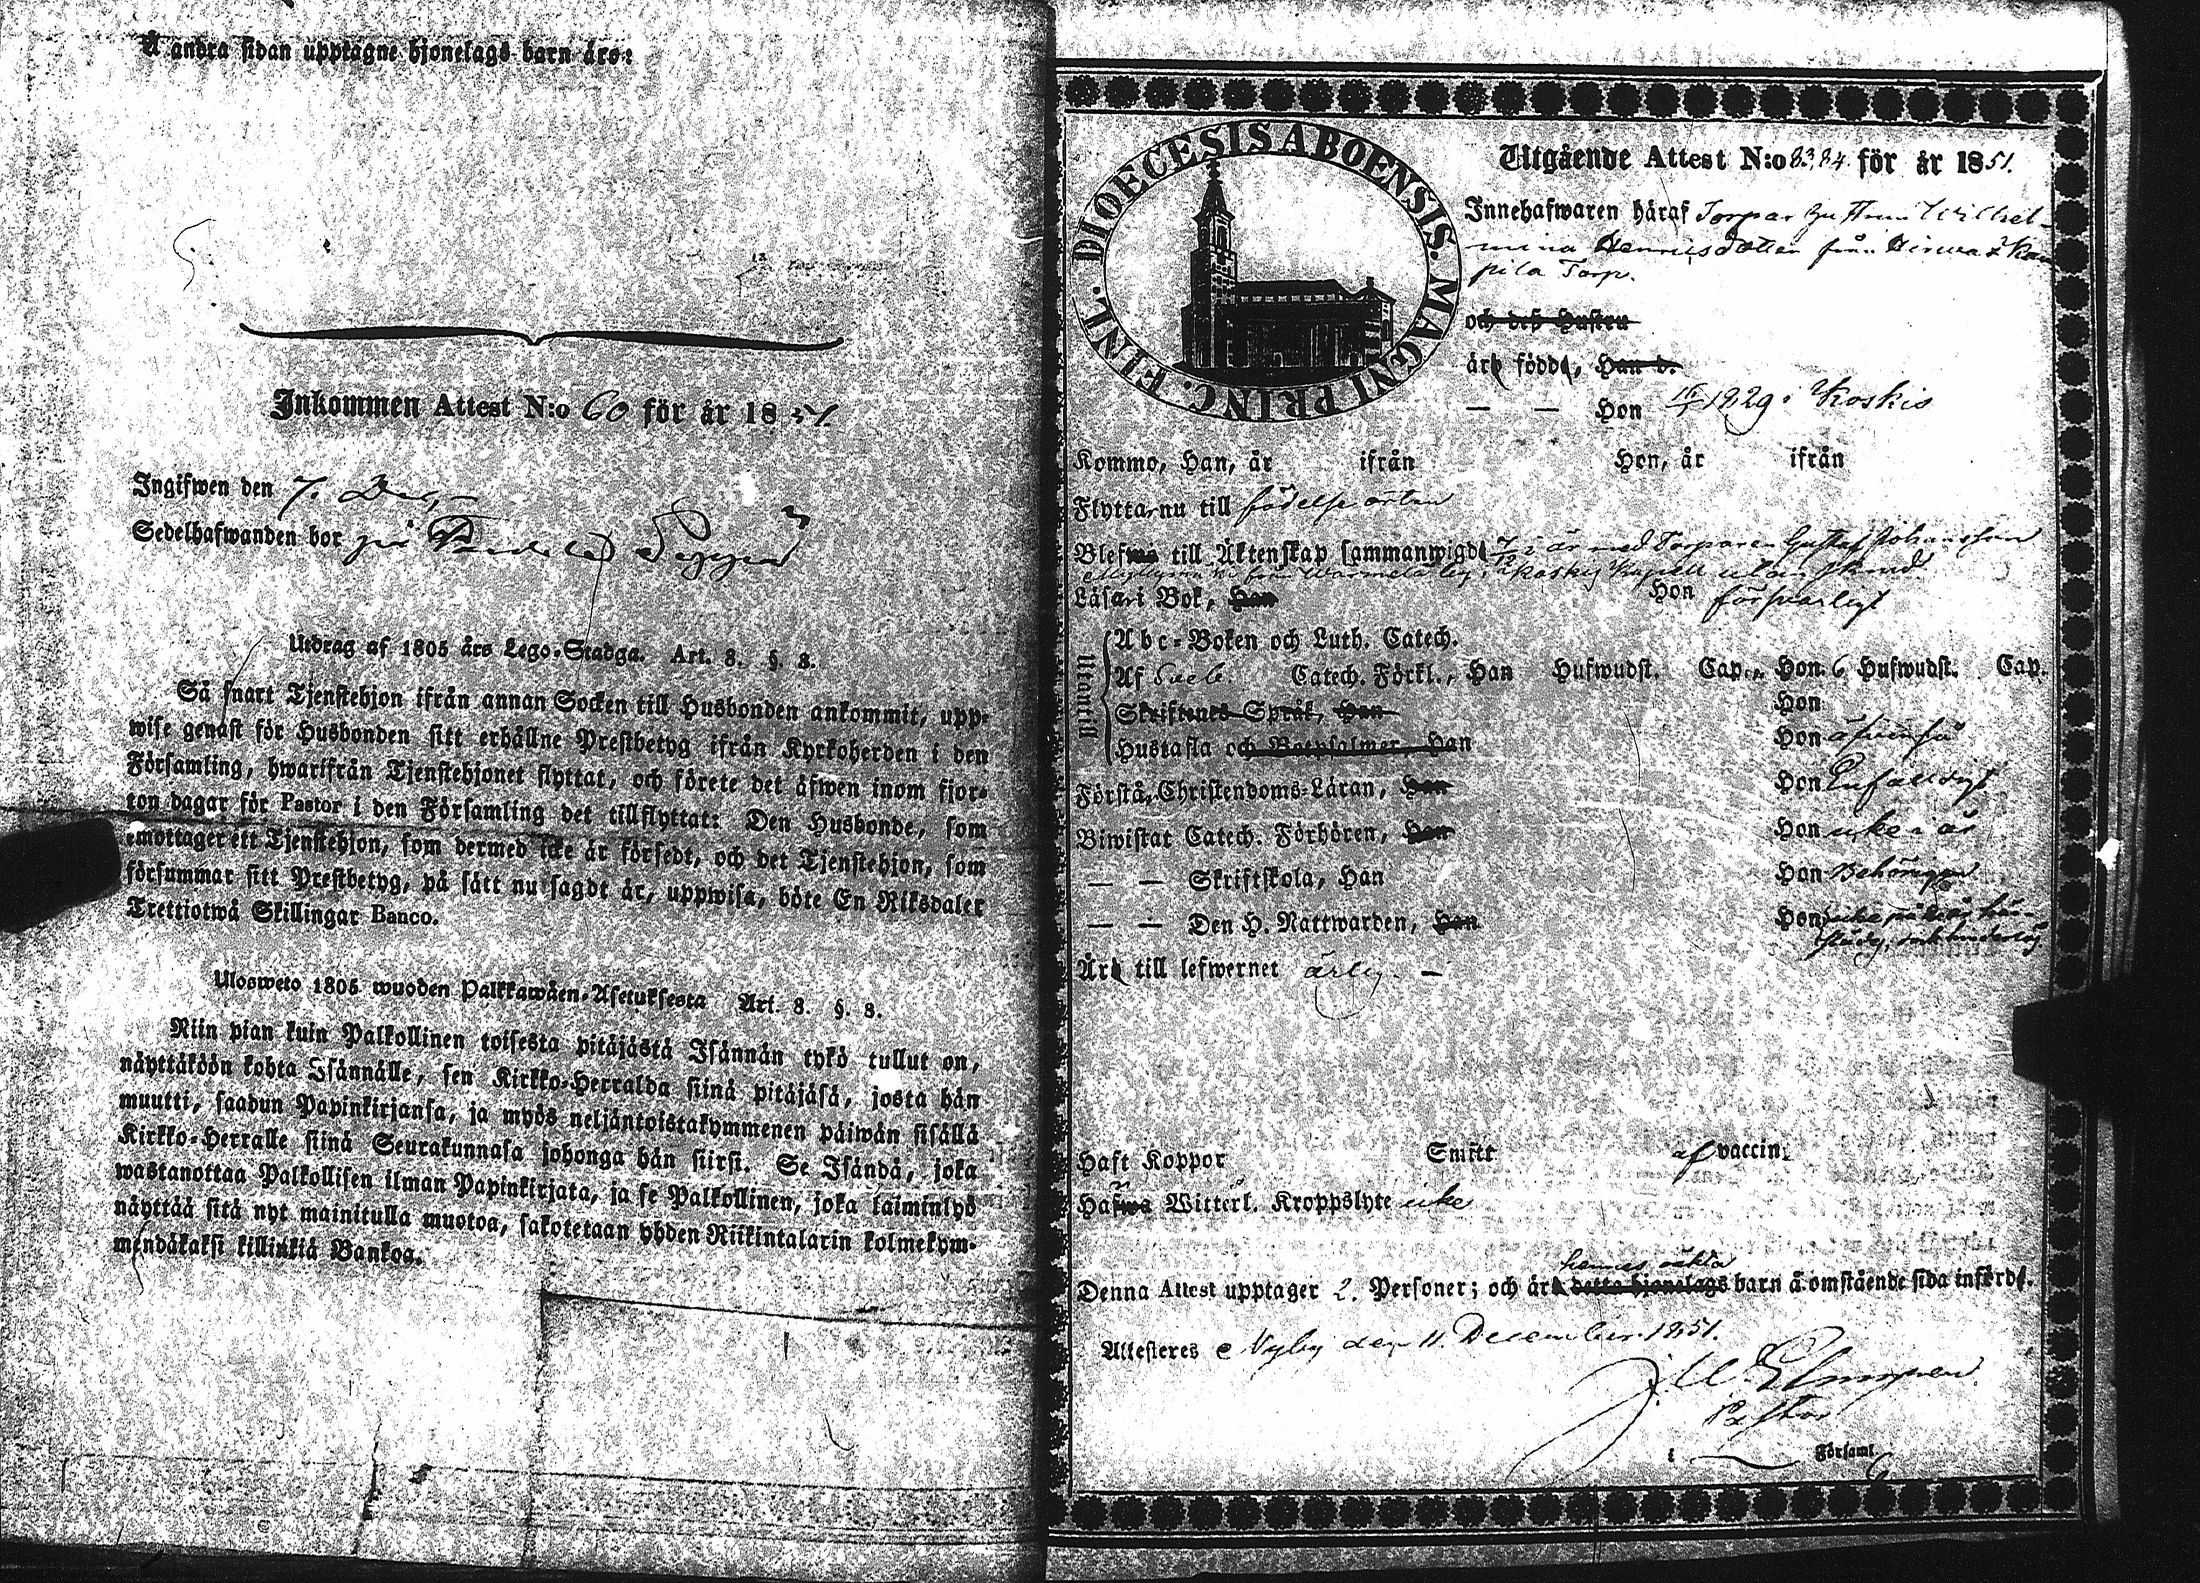 Å andra sidan upptagne hjonelags barn äro:
Inkommen Attest N:o 60 för år 1851
Ingifwen den 7. Dec.
Sedelhafwanden bor på
Utdrag af 1805 års Lego-Stadga. Art. 8. §. 3.
Så snart Tjenstehjon ifrån annan Socken till Husbonden ankommit, upp-
wise genast för Husbonden sitt erhållne Prestbetyg ifrån Kyrkoherden i den
Församling, hwarifrån Tjenstehjonet flyttat, och förete det äfwen inom fjor-
ton dagar för Pastor i den Församling det tillflyttat: Den Husbonde, som
emottager ett Tjenstehjon, som dermed icke är försedt, och det Tjenstehjon, som
försummar sitt Prestbetyg, på sätt nu sagdt är, uppwisa, böte En Riksdaler
Trettiotwå Skillingar Banco.
Ulosweto 1805 wuoden Palkkawäen-Asetuksesta Art. 8. §. 3.
Niin pian kuin Palkollinen toisesta pitäjästä Isännän tykö tullut on,
näyttäköön kohta Isännälle, sen Kirkko-Herralda siinä pitäjäsä, josta hän
muutti, saadun Papinkirjansa, ja myös neljäntoistakymmenen päiwän sisällä
Kirkko-Herralle siinä Seurakunnasa johonga hän siirsi. Se Isändä, joka
wastanottaa Palkollisen ilman Papinkirjata, ja se Palkollinen, joka laiminlyö
näyttää sitä nyt mainitulla muotoa, sakotetaan yhden Riikintalarin kolmekym-
mendäkaksi killinkiä Bankoa.
FINL. DIOECESIS ABOENSIS. MAGNI PRINC.
Utgående Attest N:o 83.84 för år 1851.
Innehafwaren häraf Torpar Hustrun Wilhel-
mina Henricsdotter från
pila Torp.
och dess Hustru
äro födde, Han d.
— — Hon 1829 i Koskis
Kommo, Han, år ifrån Hon, år ifrån
Flytta, nu till födelse orten
Blefwo till Äktenskap sammanwigde i år med Torparen Gustaf Johansson
från Warmela by i Koskis Kapell utan
Läsa i Bok, Han Hon förswarligt
Utantill
Abc-Boken och Luth. Catech.
Af Sveb. Catech. Förkl., Han Hufwudst. Cap., Hon 6 Hufwudst. Cap.
Skriftenes Språk, Han Hon
Hustafla och Botpsalmer, Han Hon äfwenså
Förstå, Christendoms-Läran, Han Hon Enfaldigt
Biwistat Catech. Förhören, Han Hon icke i år
— — Skriftskola, Han Hon Behörigen
— — Den H. Nattwarden, Han Hon icke
Äro till lefwernet ärlig. —
Haft Koppor Smitt af vaccin.
Hafwa Witterl. Kroppslyte icke
hennes oäkta
Denna Attest upptager 2. Personer; och äro detta hjonelags barn å omstående sida införde.
Attesteres e Nyby den 11. December 1851.
Pastor
i Församl.